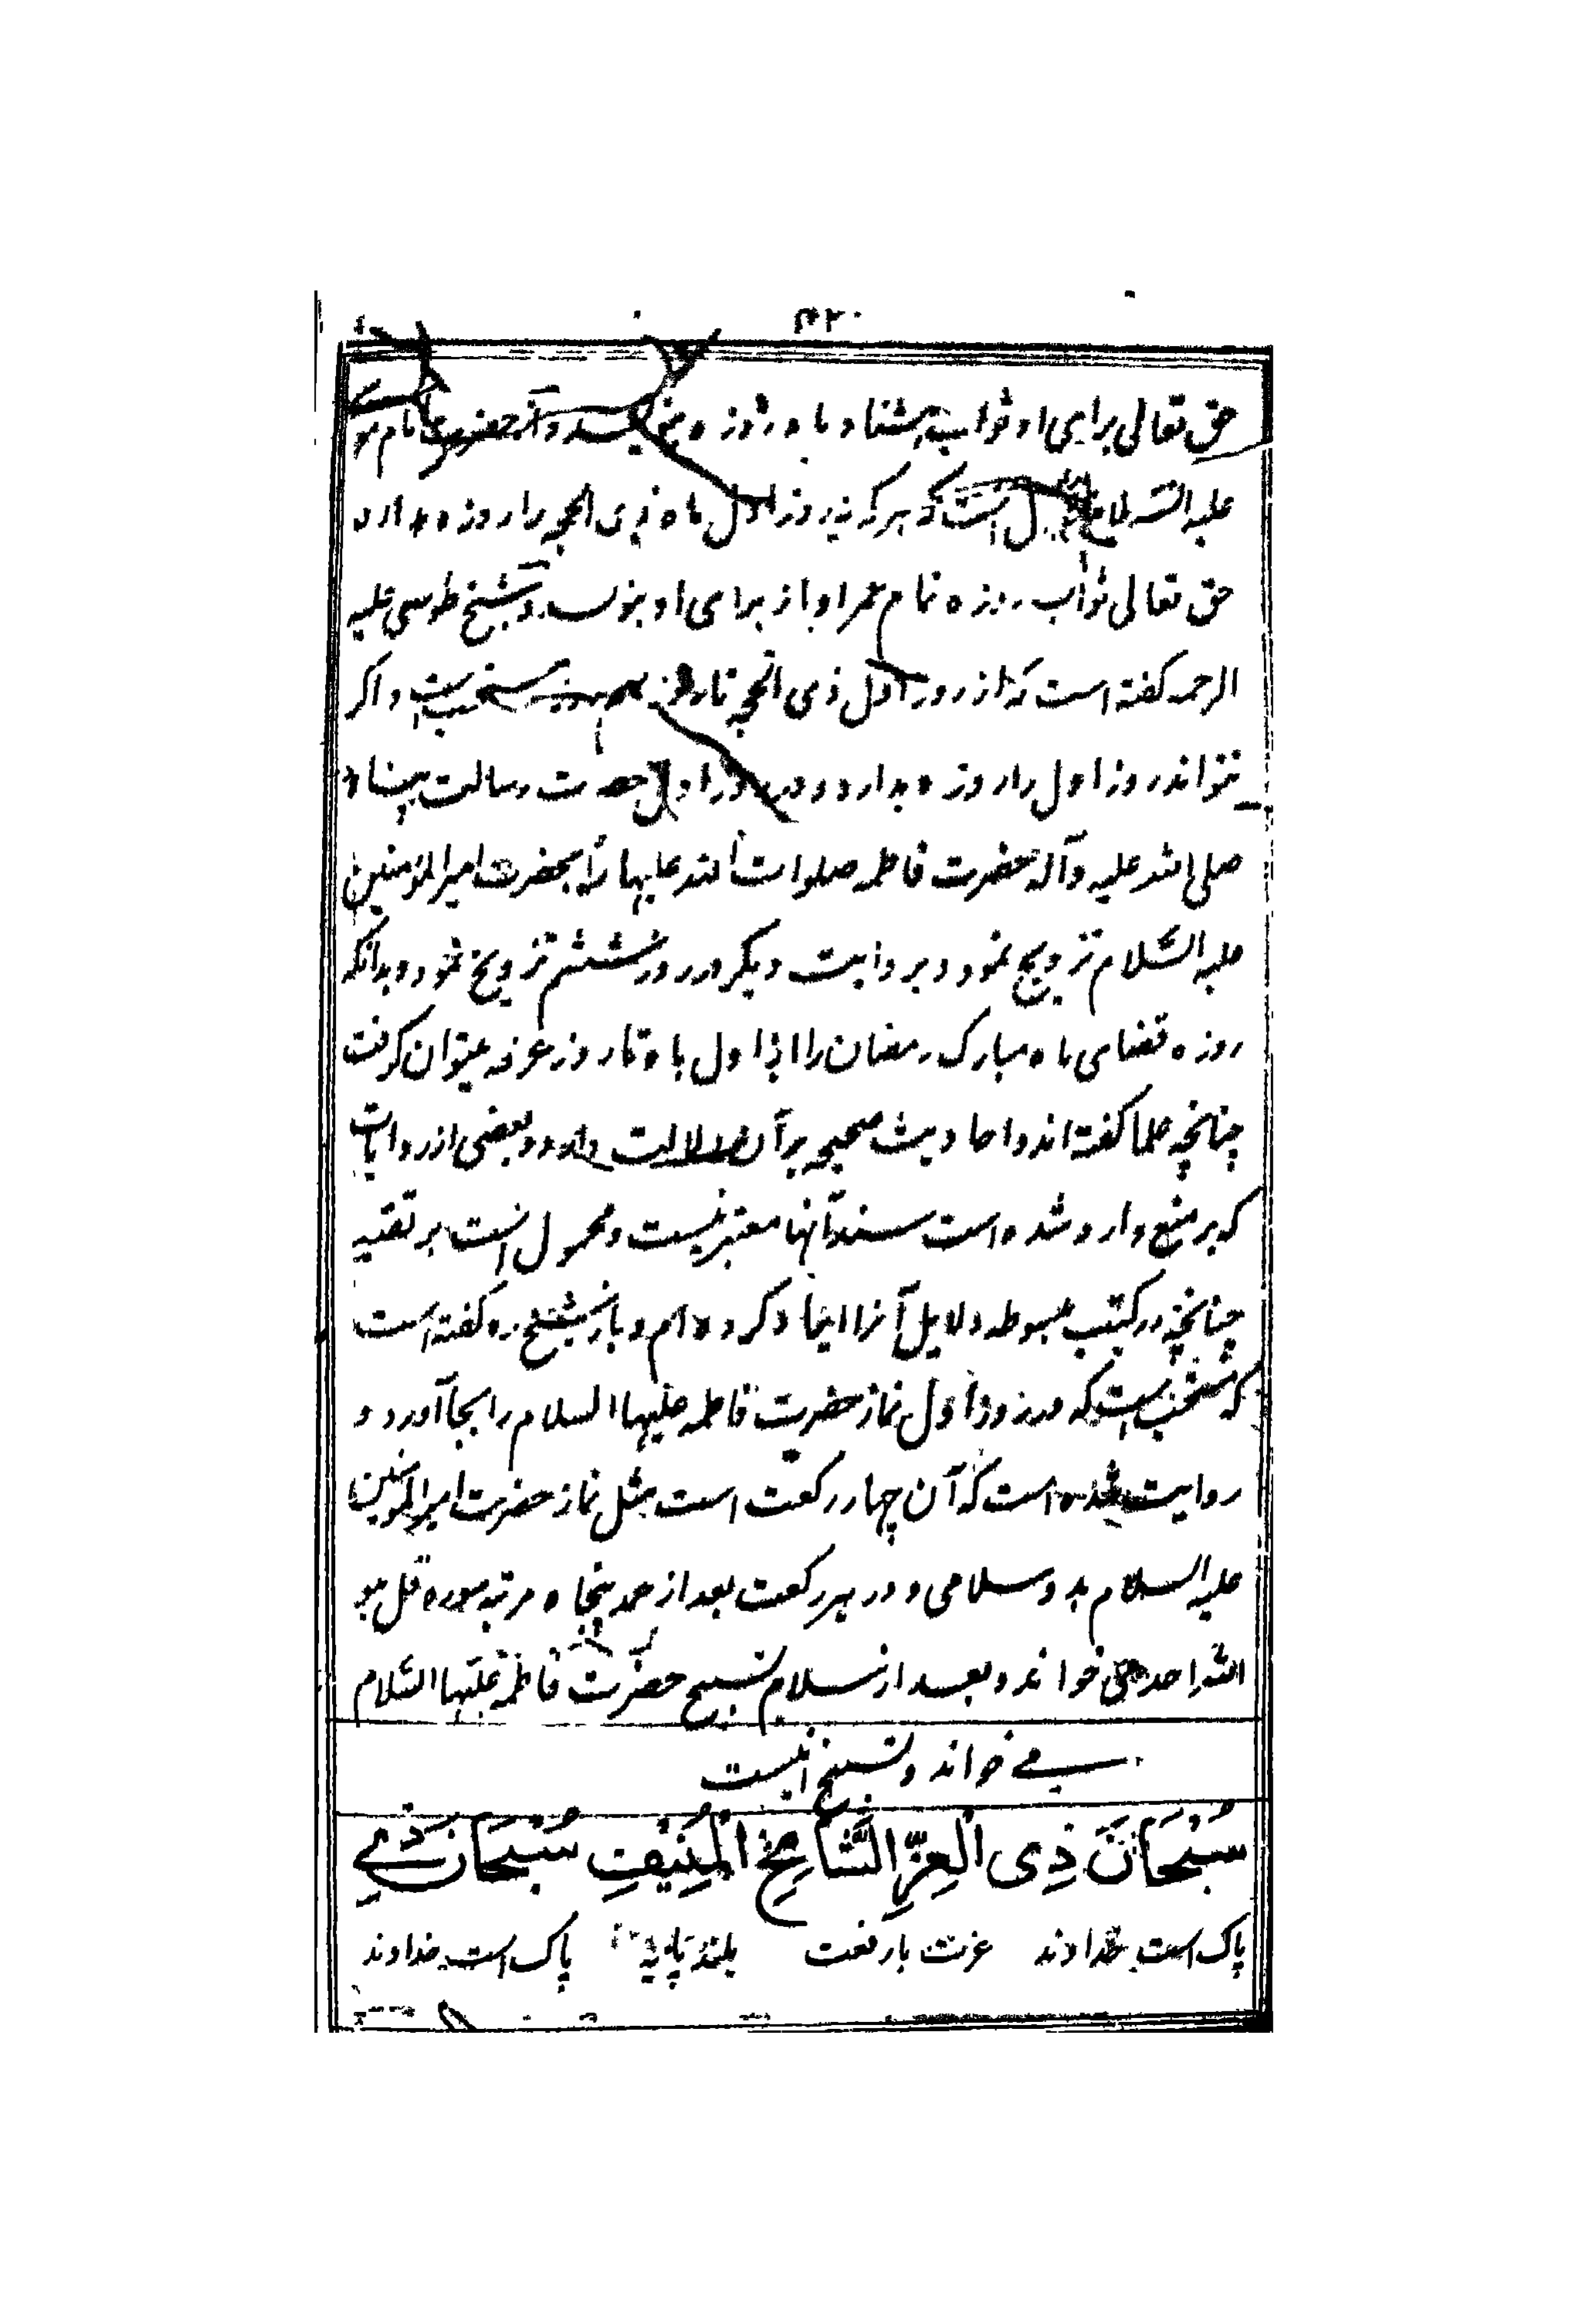 ۴۲۰
حق تعالی برای او ثواب هشتاد ماه روزه بنویسد و از حضرت امام مو
علیه السلام است که هر که نه روز اول ماه ذی الحجه را روزه دارد
حق تعالی ثواب روزه تمام عمر او از برای او بنویسد و شیخ طوسی علیه
الرحمه کفته است که از روز اول ذی الحجه تا روز مستحب است و اکر
نتواند روز اول را روزه بدارد و در روز اول حضرت رسالت پناه
صلی الله علیه وآله حضرت فاطمه صلوات الله علیها را بحضرت امیرالمؤمنین
علیه السّلام تزویج نمود و بروایت دیکر در روز ششم تزویج نمود و بدانکه
روزه قضای ماه مبارک رمضان را از اول ماه تا روز عرفه میتوان کرفت
چنانچه علما کفته اند و احادیث صحیحه بر آن دلالت دارد و بعضی از روایات
که بر منع وارد شده است سند آنها معتبر نیست و محمول است بر تقیه
چنانچه در کتب مبسوطه دلایل آنرا ایماء کرده ام و باز شیخ ره کفته است
که مستحب است که در روز اول نماز حضرت فاطمه علیها السلام را بجا آورد و
روایت شده است که آن چهار رکعت است مثل نماز حضرت امیرالمومنین
علیه السلام بدو سلام و در هر رکعت بعد از حمد پنجاه مرتبه سوره قل هو
الله احد می خواند و بعد از سلام تسبیح حضرت فاطمه علیها السّلام
می خواند و تسبیح اینست
سُبْحَانَ ذِی الْعِزِّ الشَّامِخِ الْمُنِیْفِ سُبْحَانَ ذِی
پاک است خداوند عزت بارفعت بلند پایه پاک است خداوند